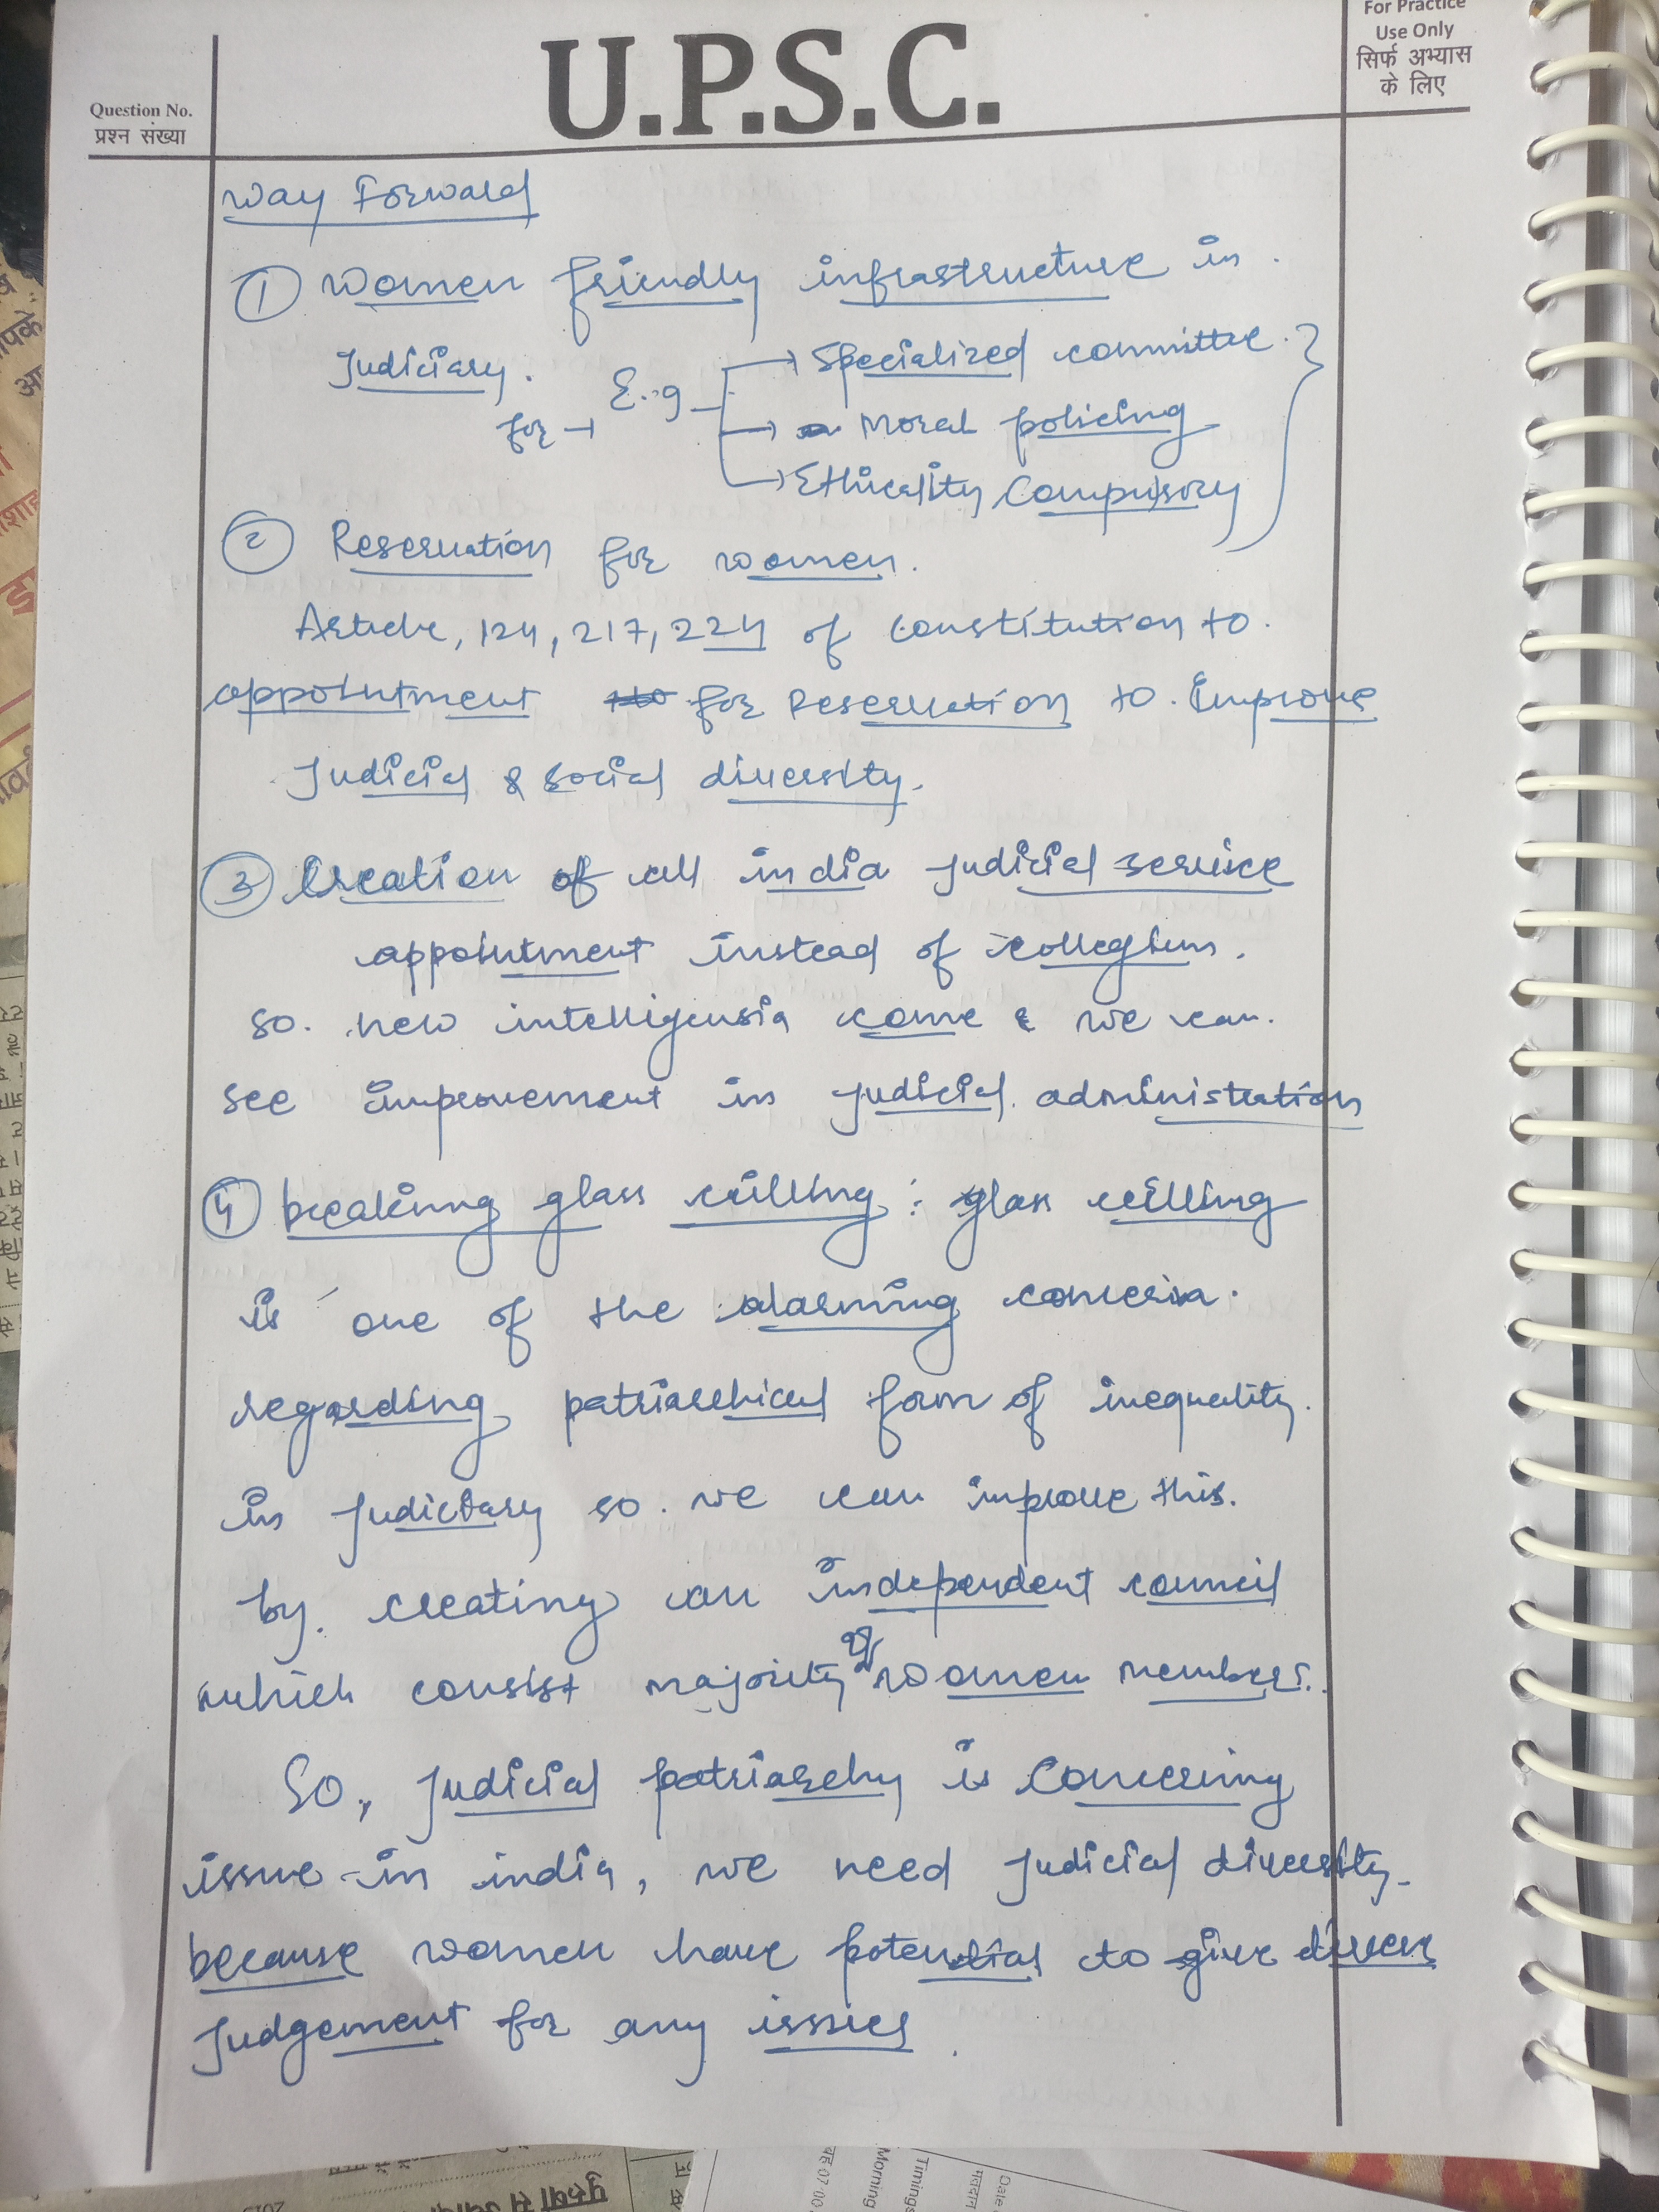 For Practice
Use Only
सिर्फ अभ्यास
के लिए
U.P.S.C.
Question No.
प्रश्न संख्या
Way Forward
① Women friendly infrastructure in
Judiciary.
for → E.g → Specialized committee
→ Moral policing
→ Ethicality Compulsory
② Reservation for women.
Article, 124, 217, 224 of constitution to
appointment for Reservation to Improve
Judicial & social diversity.
③ Creation of all india judicial service
appointment instead of collegium.
so. new intelligensia come & we can.
see improvement in judicial administration
④ breaking glass ceilling : glass ceilling
is one of the alarming concern.
regarding patriarchical form of inequality.
in judiciary so. we can improve this.
by. creating an independent council
which consist majority of women members.
So, judicial patriarchy is concerning
issue in india, we need judicial diversity.
because women have potential to give divers
judgement for any issues.
Morning
Timings
Date
2015